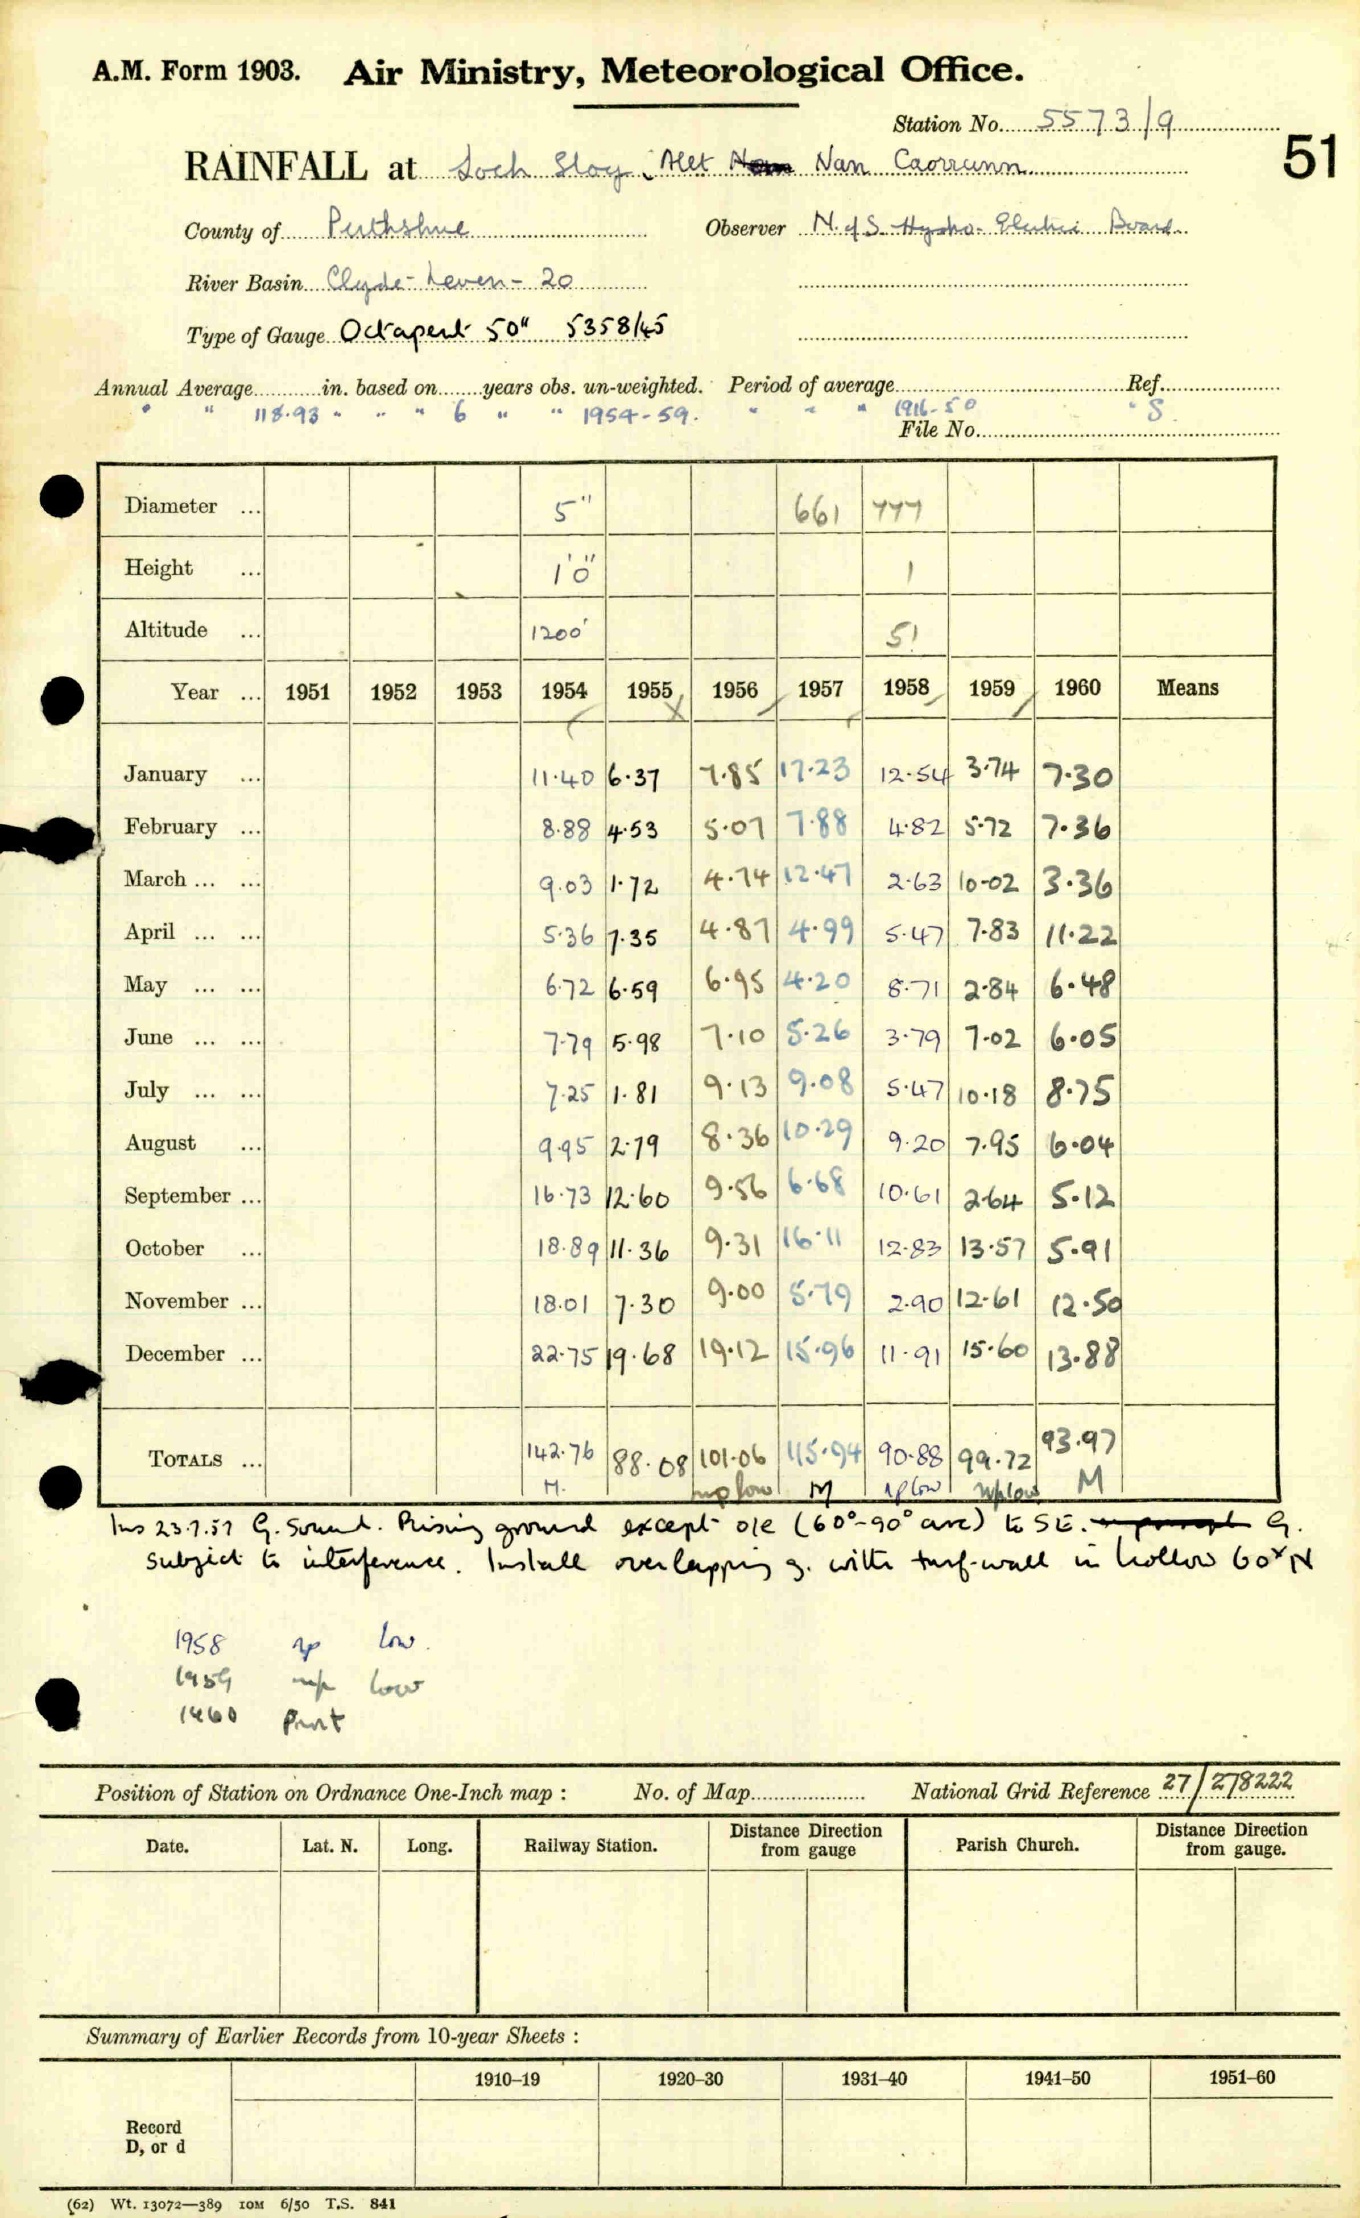 A.M. Form 1903. Air Ministry, Meteorological Office.
Station No. 5573/9
51
RAINFALL at Loch Sloy, Allt Nan Caorrunn
County of Perthshire Observer N. of S. Hydro-Electric Board
River Basin Clyde-Leven-20
Type of Gauge Octapent 50" 5358/45
Annual Average in. based on years obs. un-weighted. Period of average Ref.
" " 118.93 " " " 6 " " 1954-59. " " " 1916-50 " S
File No.
Diameter ... 5" 661 777
Height ... 1'0" 1
Altitude ... 1200' 51
Year ... 1951 1952 1953 1954 1955 1956 1957 1958 1959 1960 Means
January ... 11.40 6.37 7.85 17.23 12.54 3.74 7.30
February ... 8.88 4.53 5.07 7.88 4.82 5.72 7.36
March ... ... 9.03 1.72 4.74 12.47 2.63 10.02 3.36
April ... ... 5.36 7.35 4.87 4.99 5.47 7.83 11.22
May ... ... 6.72 6.59 6.95 4.20 8.71 2.84 6.48
June ... ... 7.79 5.98 7.10 5.26 3.79 7.02 6.05
July ... ... 7.25 1.81 9.13 9.08 5.47 10.18 8.75
August ... 9.95 2.79 8.36 10.29 9.20 7.95 6.04
September ... 16.73 12.60 9.56 6.68 10.61 2.64 5.12
October ... 18.89 11.36 9.31 16.11 12.83 13.57 5.91
November ... 18.01 7.30 9.00 5.79 2.90 12.61 12.50
December ... 22.75 19.68 19.12 15.96 11.91 15.60 13.88
TOTALS ... 142.76 88.08 101.06 115.94 90.88 99.72 93.97
M. np low M np low np low M
Ins 23.7.57 G. Sound. Rising ground except o/e (60°-90° arc) to SE. G.
subject to interference. Install overlapping g. with turf-wall in hollow 60x N
1958 np low.
1959 np low
1960 Print
Position of Station on Ordnance One-Inch map : No. of Map National Grid Reference 27/278222
Date. Lat. N. Long. Railway Station. Distance Direction from gauge Parish Church. Distance Direction from gauge.
Summary of Earlier Records from 10-year Sheets :
1910–19 1920–30 1931–40 1941–50 1951–60
Record
D, or d
(62) Wt. 13072—389 10M 6/50 T.S. 841